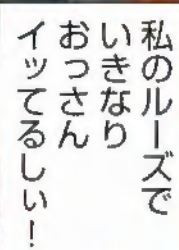 私のルーズで
いきなり
おっさん
イッてるしぃ!